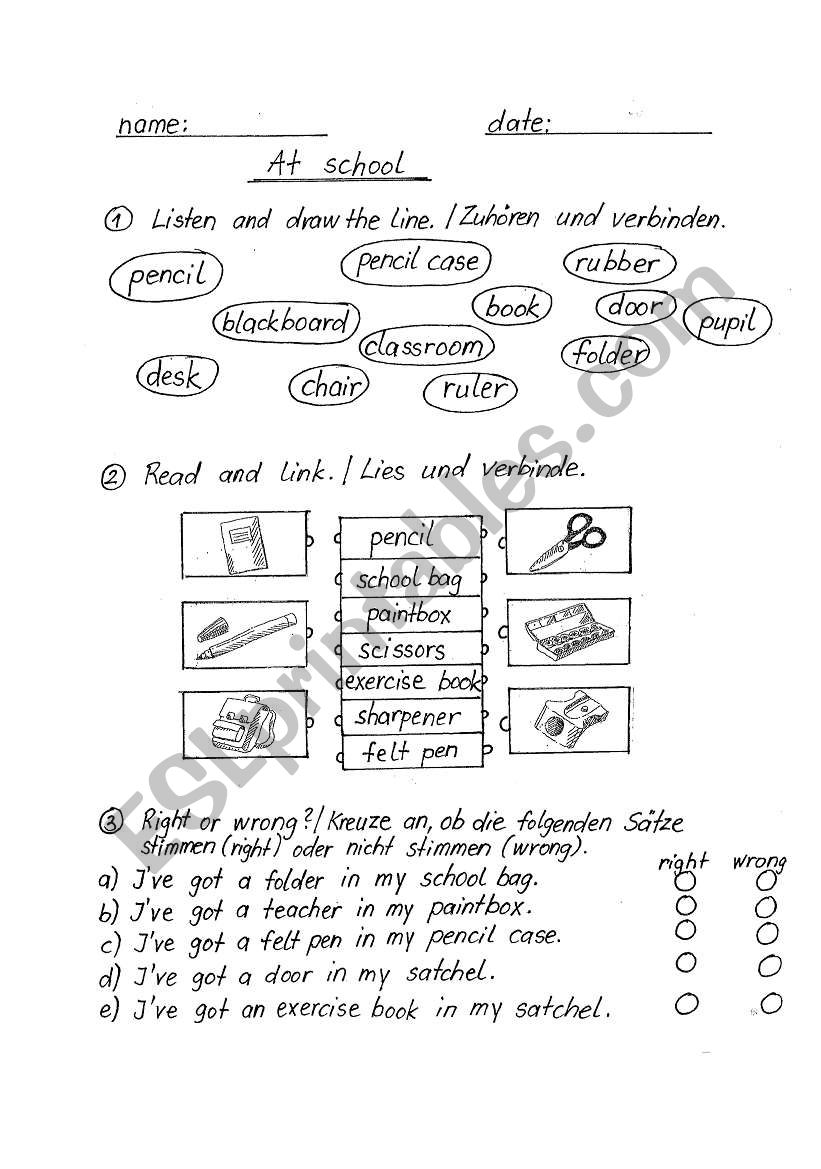 name: date:
At school
1 Listen and draw the line. / Zuhören und verbinden.
pencil pencil case rubber
blackboard book door pupil
classroom folder
desk chair ruler
2 Read and link. / Lies und verbinde.
pencil
school bag
paintbox
scissors
exercise book
sharpener
felt pen
3 Right or wrong? / Kreuze an, ob die folgenden Sätze
stimmen (right) oder nicht stimmen (wrong).
right wrong
a) I've got a folder in my school bag.
b) I've got a teacher in my paintbox.
c) I've got a felt pen in my pencil case.
d) I've got a door in my satchel.
e) I've got an exercise book in my satchel.
ESLprintables.com